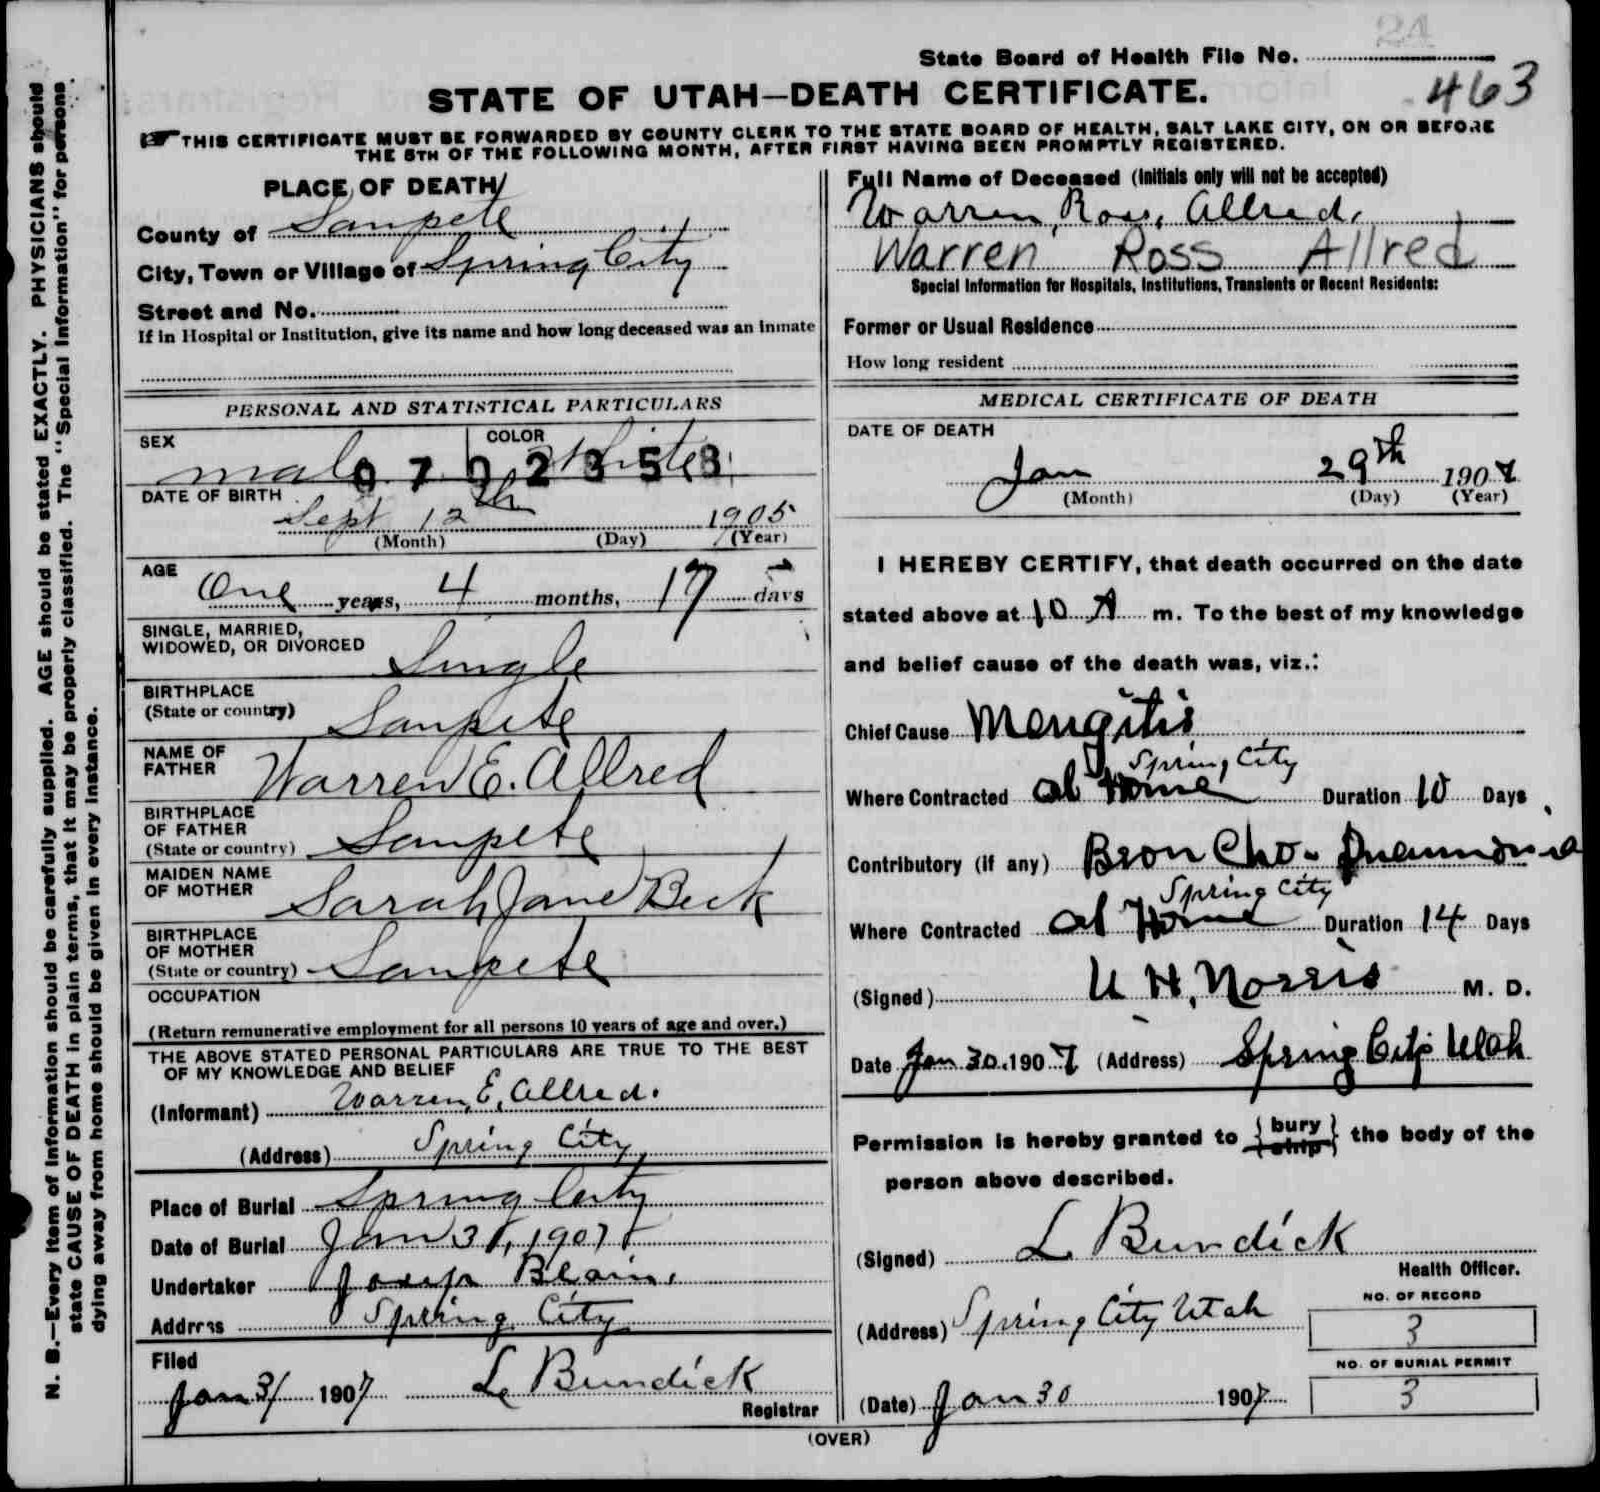 24
State Board of Health File No.
463
STATE OF UTAH—DEATH CERTIFICATE.
THIS CERTIFICATE MUST BE FORWARDED BY COUNTY CLERK TO THE STATE BOARD OF HEALTH, SALT LAKE CITY, ON OR BEFORE
THE 5TH OF THE FOLLOWING MONTH, AFTER FIRST HAVING BEEN PROMPTLY REGISTERED.
N. B.—Every item of information should be carefully supplied. AGE should be stated EXACTLY. PHYSICIANS should
state CAUSE OF DEATH in plain terms, that it may be properly classified. The "Special Information" for persons
dying away from home should be given in every instance.
PLACE OF DEATH
County of Sanpete
City, Town or Village of Spring City
Street and No.
If in Hospital or Institution, give its name and how long deceased was an inmate
PERSONAL AND STATISTICAL PARTICULARS
SEX COLOR
male White
0702353
DATE OF BIRTH
Sept 12th 1905
(Month) (Day) (Year)
AGE One years, 4 months, 17 days
SINGLE, MARRIED,
WIDOWED, OR DIVORCED Single
BIRTHPLACE
(State or country) Sanpete
NAME OF
FATHER Warren E. Allred
BIRTHPLACE
OF FATHER
(State or country) Sanpete
MAIDEN NAME
OF MOTHER Sarah Jane Beck
BIRTHPLACE
OF MOTHER
(State or country) Sanpete
OCCUPATION
(Return remunerative employment for all persons 10 years of age and over.)
THE ABOVE STATED PERSONAL PARTICULARS ARE TRUE TO THE BEST
OF MY KNOWLEDGE AND BELIEF
(Informant) Warren, E, Allred.
(Address) Spring City,
Place of Burial Spring City
Date of Burial Jan 31, 1907
Undertaker Josep Blain,
Address Spring City
Filed
Jan 31 1907 L Bundick
Registrar
Full Name of Deceased (Initials only will not be accepted)
Warren, Ross, Allred,
Warren Ross Allred
Special Information for Hospitals, Institutions, Transients or Recent Residents:
Former or Usual Residence
How long resident
MEDICAL CERTIFICATE OF DEATH
DATE OF DEATH
Jan 29th 1907
(Month) (Day) (Year)
I HEREBY CERTIFY, that death occurred on the date
stated above at 10 A m. To the best of my knowledge
and belief cause of the death was, viz.:
Chief Cause Mengitis
Spring City
Where Contracted at Home Duration 10 Days
Contributory (if any) Broncho-Pneumonia
Spring City
Where Contracted at Home Duration 14 Days
(Signed) U H, Norris M. D.
Date Jan 30. 1907 (Address) Spring City Utah
Permission is hereby granted to {bury
ship} the body of the
person above described.
(Signed) L Bundick
Health Officer.
(Address) Spring City Utah
NO. OF RECORD
3
NO. OF BURIAL PERMIT
3
(Date) Jan 30 1907
(OVER)